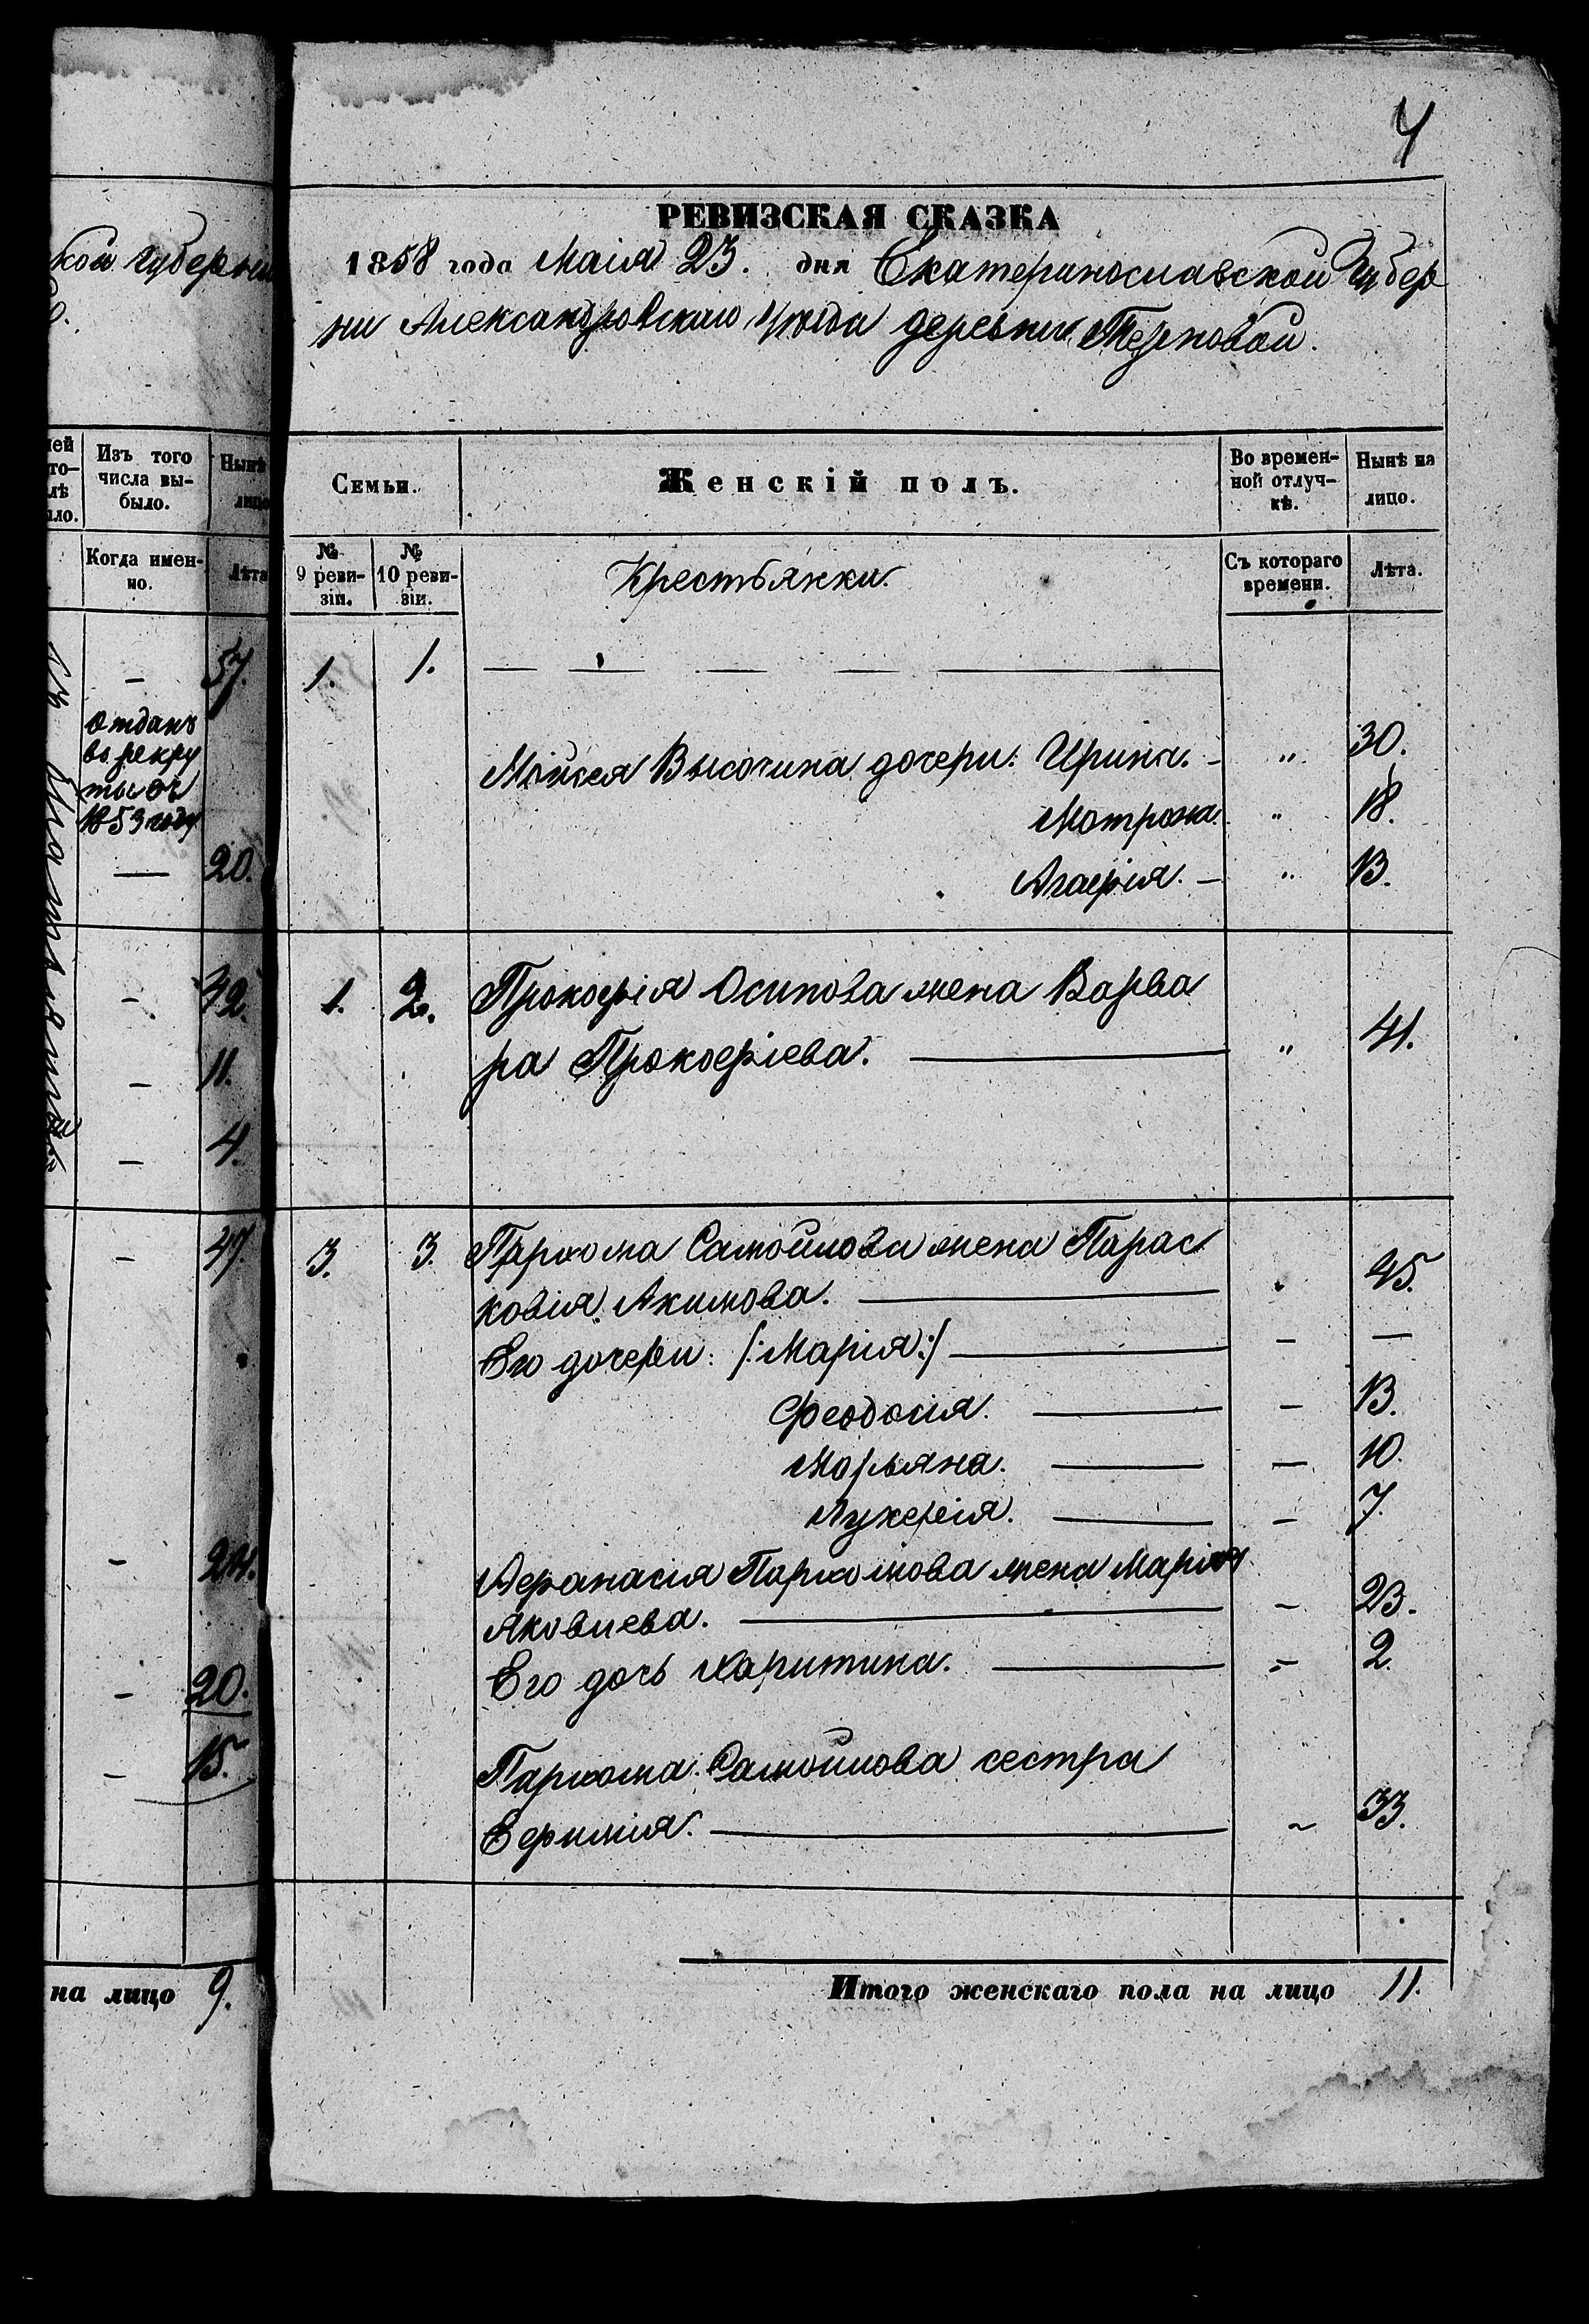 4
РЕВИЗСКАЯ СКАЗКА
кой губернии
1858 года Маія 23. дня Екатеринославской Губер
ни Александровскаго уѣзда деревни Терновой.
Изъ того числа вы-было.
Нынѣ лицо
Когда имен-но.
Лѣта
Семьи.
Женскій полъ.
Во времен-ной отлуч-кѣ.
Нынѣ на лицо.
№ 9 реви-зіи.
№ 10 реви-зіи.
Крестьянки.
Съ котораго времени.
Лѣта.
— 57.
Отданъ
въ рекру
ты въ
1853 году
— 20.
— 42.
— 11.
— 4.
— 47.
— 24.
— 20.
— 15.
на лицо 9.
1. 1. — — — — —
Мойсея Высочина дочери: Ирина. — „ 30.
Мотрона. „ 18.
Агафія. — „ 13.
1. 2. Прокофія Осипова жена Варва
ра Прокофіева. — „ 41.
3. 3. Пархома Самойлова жена Парас
ковія Акимова. — 45.
Его дочери: /:Марія:/ — — —
Феодосія. — — 13.
Марьяна. — — 10.
Лукерія. — — 7.
Афанасія Пархомова жена Марія
Яковлева. — — 23.
Его дочь Харитина. — — 2.
Пархома Самойлова сестра
Ефимія. — 33.
Итого женскаго пола на лицо 11.